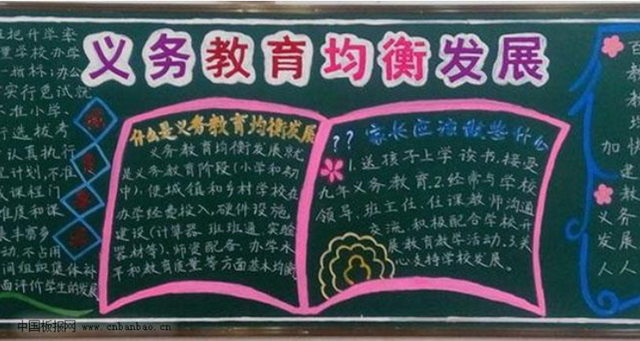 义务教育均衡发展
且把开学率
量学校办学
一指标;办公
实行免试就
准小学、
行选拔考
认真执行
程计划,不准
减课程门
难度和课
丰富多
动,不占用
间组织集体补
面评价学生的发展
什么是义务教育均衡发展
义务教育均衡发展就
是义务教育阶段(小学和初
中),使城镇和乡村学校在
办学经费投入、硬件设施
建设(计算器、班班通、实验
器材等)、师资配备、办学水
平和教育质量等方面基本均衡
??家长应该做些什么
1.送孩子上学读书,接受
九年义务教育.2.经常与学校
领导、班主任、任课教师沟通
交流,积极配合学校开
展教育教学活动.3.关
心支持学校发展。
加快
义务
发展
人人
中国板报网 www.cnbanbao.cn